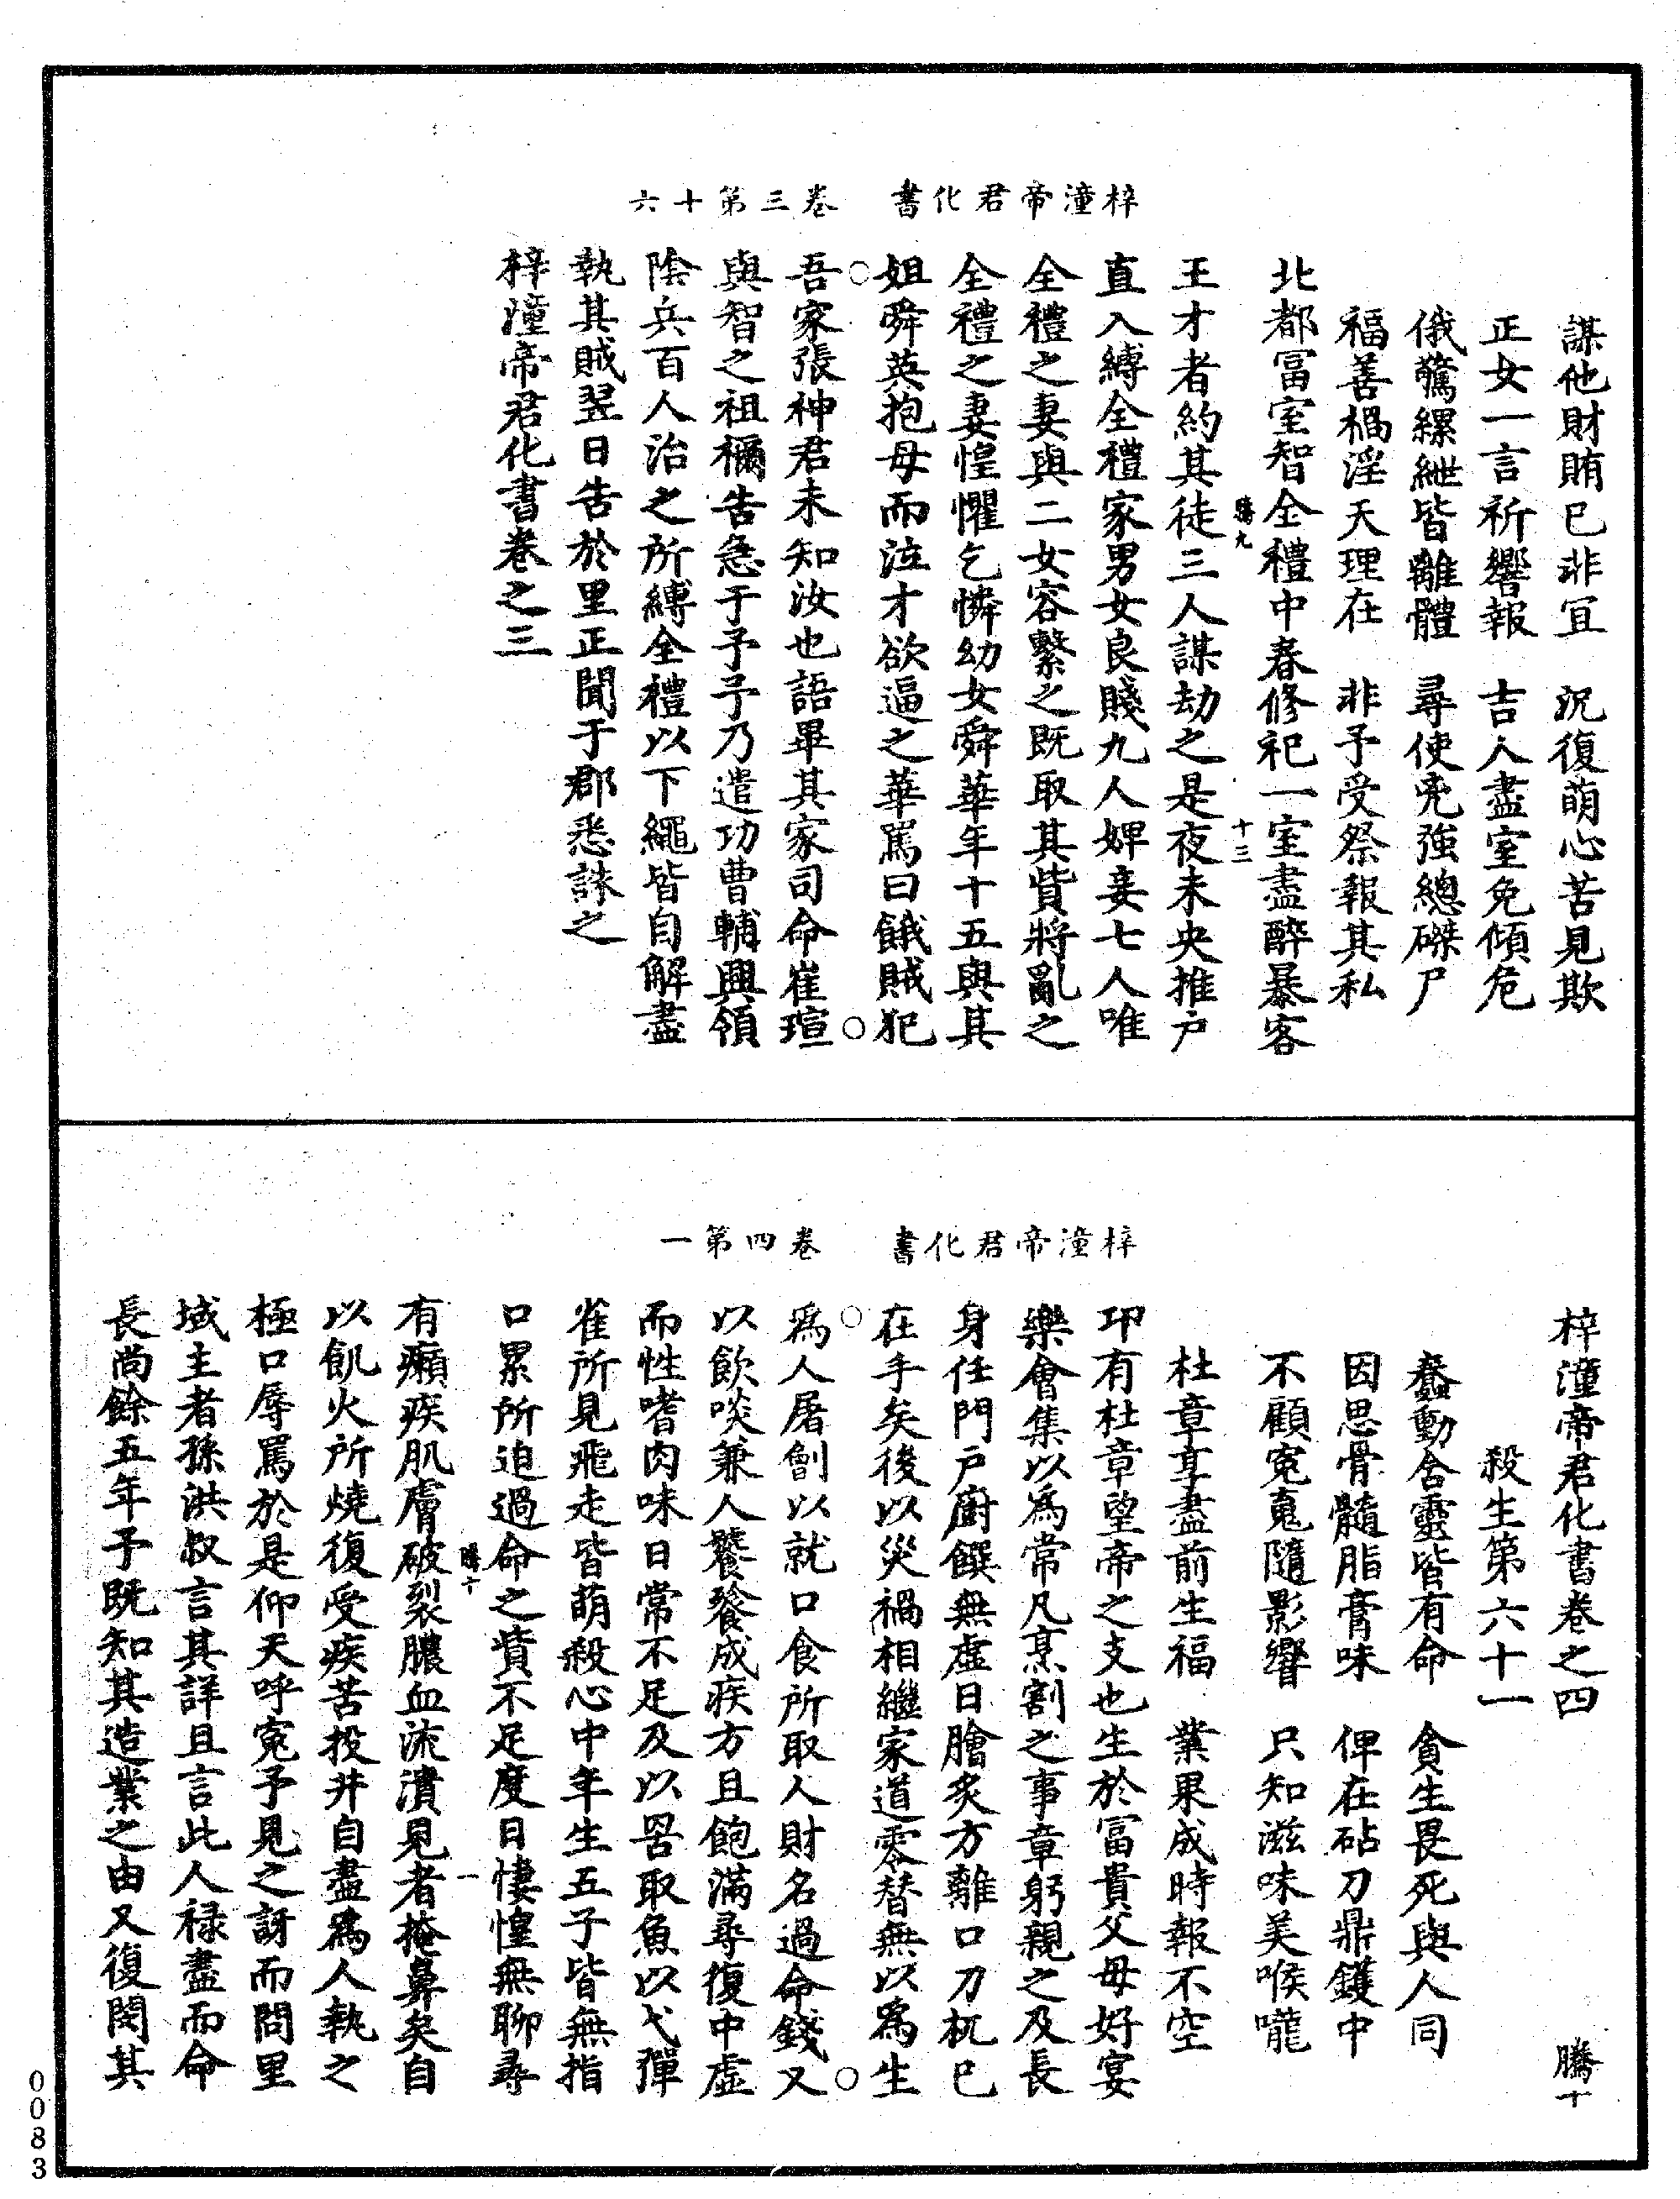 梓潼帝君化書　卷三第十六
謀他財賄已非宜　況復萌心苦見欺
正女一言祈響報　吉人盡室免傾危
俄驚縲紲皆離體　尋使兇強總磔尸
福善禍淫天理在　非予受祭報其私
北都富室智全禮中春修祀一室盡醉暴客
騰九　十三
王才者約其徒三人謀劫之是夜未央推户
直入縛全禮家男女良賤九人婢妾七人唯
全禮之妻與二女容繫之既取其貲將亂之
全禮之妻惶懼乞憐幼女舜華年十五與其
姐舜英抱母而泣才欲逼之華罵曰餓賊犯
吾家張神君未知汝也語畢其家司命崔瑄
與智之祖禰告急于予予乃遣功曹輔興領
陰兵百人治之所縛全禮以下繩皆自解盡
執其賊翌日告於里正聞于郡悉誅之
梓潼帝君化書卷之三
梓潼帝君化書　卷四第一
梓潼帝君化書卷之四　騰十
殺生第六十一
蠢動含靈皆有命　貪生畏死與人同
因思骨髓脂膏味　俾在砧刀鼎鑊中
不顧冤鬼隨影響　只知滋味美喉嚨
杜章享盡前生福　業果成時報不空
邛有杜章望帝之支也生於富貴父母好宴
樂會集以為常凡烹割之事章躬親之及長
身任門户廚饌無虛日膾炙方離口刀机已
在手矣後以災禍相繼家道零替無以為生
為人屠劊以就口食所取人財名過命錢又
以飲啖兼人饕餮成疾方且飽滿尋復中虛
而性嗜肉味日常不足及以罟取魚以弋彈
雀所見飛走皆萌殺心中年生五子皆無指
口累所迫過命之貲不足度日悽惶無聊尋
騰十　一
有癩疾肌膚破裂膿血流潰見者掩鼻矣自
以飢火所燒復受疾苦投井自盡為人執之
極口辱罵於是仰天呼冤予見之訝而問里
域主者孫洪叔言其詳且言此人祿盡而命
長尚餘五年予既知其造業之由又復閔其
0083